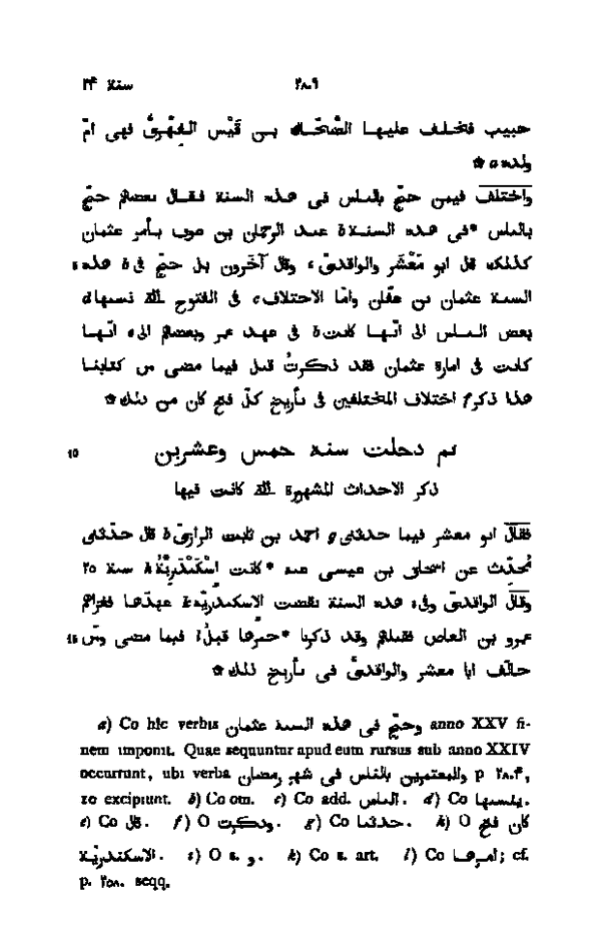 سنة ٢٤ ٢٨٠٩
حبيب فخلف عليها الضّحّاك بن قَيْس الفِهْرِىّ فهى امّ
ولده a *
واختلف فيمن حجّ بالناس فى هذه السنة فقال بعضهم حجّ
بالناس *فى هذه السنة b عبد الرحمان بن عوف بأمر عثمان
كذلك قال ابو مَعْشَر والواقدىّ، وقال آخرون بل حجّ فى b هذه
السنة عثمان بن عفّان وامّا الاختلاف c فى الفتوح التى نسبها d
بعض الناس الى انّها كانت b فى عهد عمر وبعضهم الى e انّها
كانت فى امارة عثمان فقد ذكرتُ قبل فيما مضى من كتابنا
هذا ذكر f اختلاف المختلفين فى تأريخ كلّ فتح كان من ذلك *
ثم دخلت سنة خمس وعشرين 10
ذكر الاحداث المشهورة التى كانت فيها
فقال ابو معشر فيما حدثنى g احمد بن ثابت الرازىّ b قال حدّثنى
مُحَدِّث عن اسحاق بن عيسى عنه *كانت اسْكَنْدَرِيَّةُ h سنة ٢٥
وقال الواقدىّ وفى i هذه السنة نقضت الاسكندريّة k عهدها فغزاهم
عمرو بن العاص فقتلهم وقد ذكرنا *خبرها قبلُ l فيما مضى ومَن 15
خالف ابا معشر والواقدىَّ فى تأريخ ذلك *
a) Co hic verbis وحجّ فى هذه السنة عثمان anno XXV fi-
nem imponit. Quae sequuntur apud eum rursus sub anno XXIV
occurrunt, ubi verba وللمعتمرين بالناس فى شهر رمضان p ٢٨٠٤,
10 excipiunt. b) Co om. c) Co add. الناس. d) Co ينسبها.
e) Co قال. f) O وذكرت. g) Co حدثنا. h) O كان فتح
الاسكندريّة. i) O s. و. k) Co s. art. l) Co امرها; cf.
p. ٢٥٨٠ seqq.